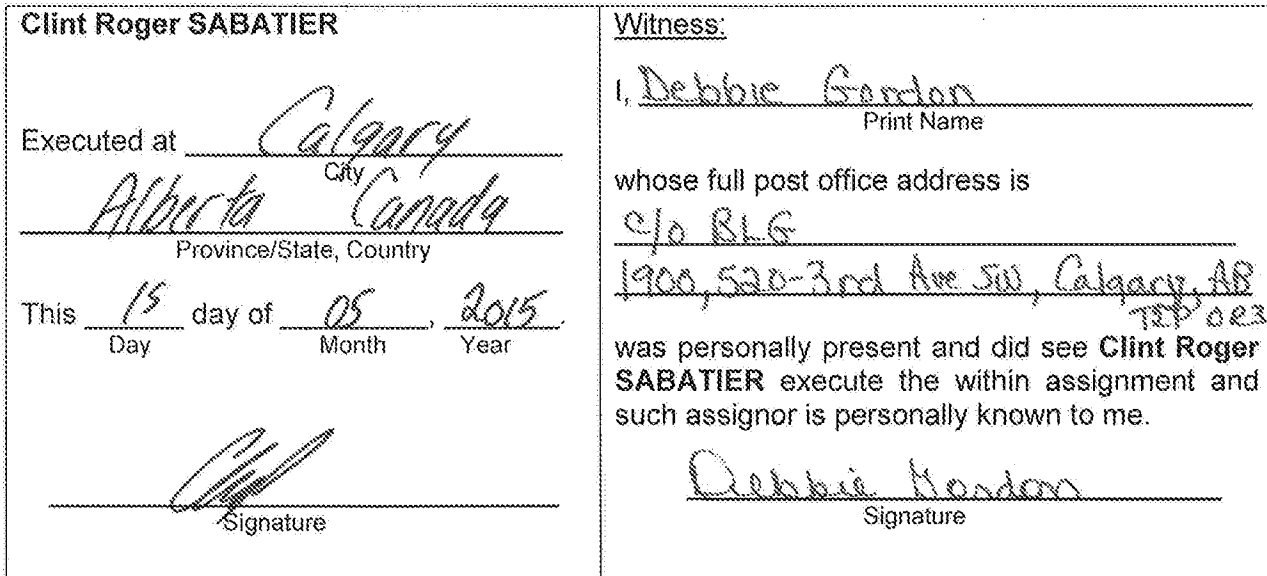 Clint Roger SABATIER
Executed at Calgary
City
Alberta Canada
Province/State, Country
This 15 day of 05, 2015.
Day Month Year
Signature
Witness:
I, Debbie Gordon
Print Name
whose full post office address is
c/o BLG
1900, 520-3rd Ave SW, Calgary, AB
T2P 0R3
was personally present and did see Clint Roger
SABATIER execute the within assignment and
such assignor is personally known to me.
Debbie Gordon
Signature